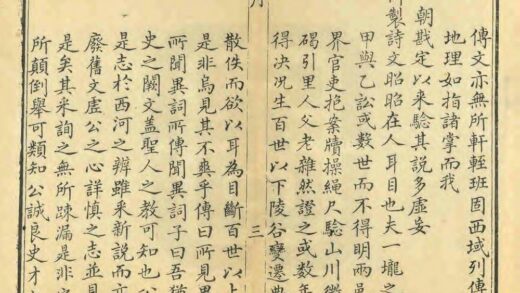 傳文亦無所軒輊班固西域列傳
地理如指諸掌而我
朝戡定以来驗其說多虚妄
製詩文昭昭在人耳目也夫一壠之
甲與乙訟或數世而不得明兩邑
界官吏抱案牘操繩尺驗山川徵
碣引里人父老雜然證之或數年
得决况生百世以下陵谷變遷典
三
散佚而欲以耳為目斷百世以上
是非烏見其不爽乎傳曰所見異
所聞異詞所傳聞異詞子曰吾猶
史之闕文盖聖人之教可知也公
是志於西河之辨雖釆新說而亦
廢舊文虛公之心詳慎之志並見
是矣其釆詢之無所踈漏是非
所顛倒舉可類知公誠良史才